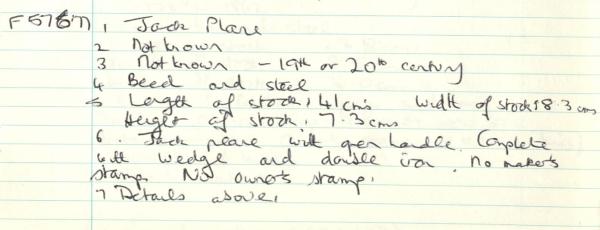 F5767) 1 Jack Plane
2 Not known
3 Not known - 19th or 20th century
4 Beed and steel
5 Length of stock: 41cms Width of stock: 8.3 cms
Height of stock: 7.3 cms
6. Jack plane with open handle. Complete
with wedge and double iron. No maker's
stamp. No owner's stamp.
7 Details above.